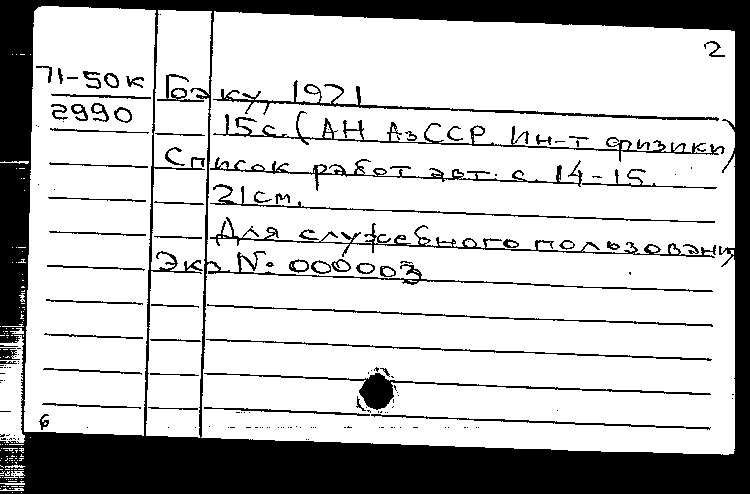 2
71-50к Гоэку, 1971
2990
15с. (АН АзССР. Ин-т физики)
Список работ авт. с. 14-15.
21см.
Для служебного пользования
Экз №: 000003
6